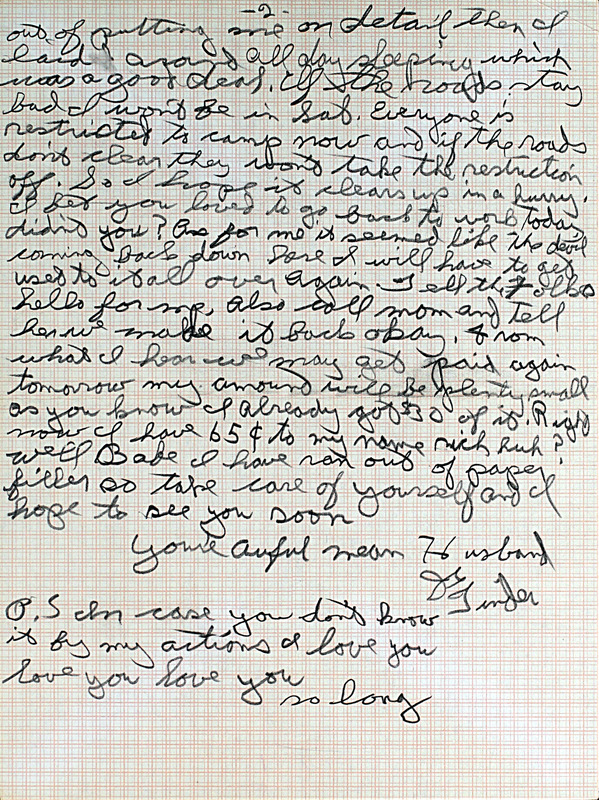 -2-
out of putting me on detail then I
laid around all day sleeping which
was a good deal. If the roads stay
bad I won't be in Sat. Everyone is
restricted to camp now and if the roads
don't clear they won't take the restriction
off. So I hope it clears up in a hurry.
I bet you loved to go back to work today
didn't you? As for me it seemed like the devil
coming back down here I will have to get
used to it all over again. Tell the folks
hello for me, also call mom and tell
her we made it back okay. From
what I hear we may get paid again
tomorrow my amound will be plenty small
as you know I already got $30 of it. Right
now I have 65¢ to my name rich huh?
well Babe I have ran out of paper
filler so take care of yourself and I
hope to see you soon
Your Awful mean Husband
Tinder
P.S In case you don't know
it by my actions I love you
love you love you
so long